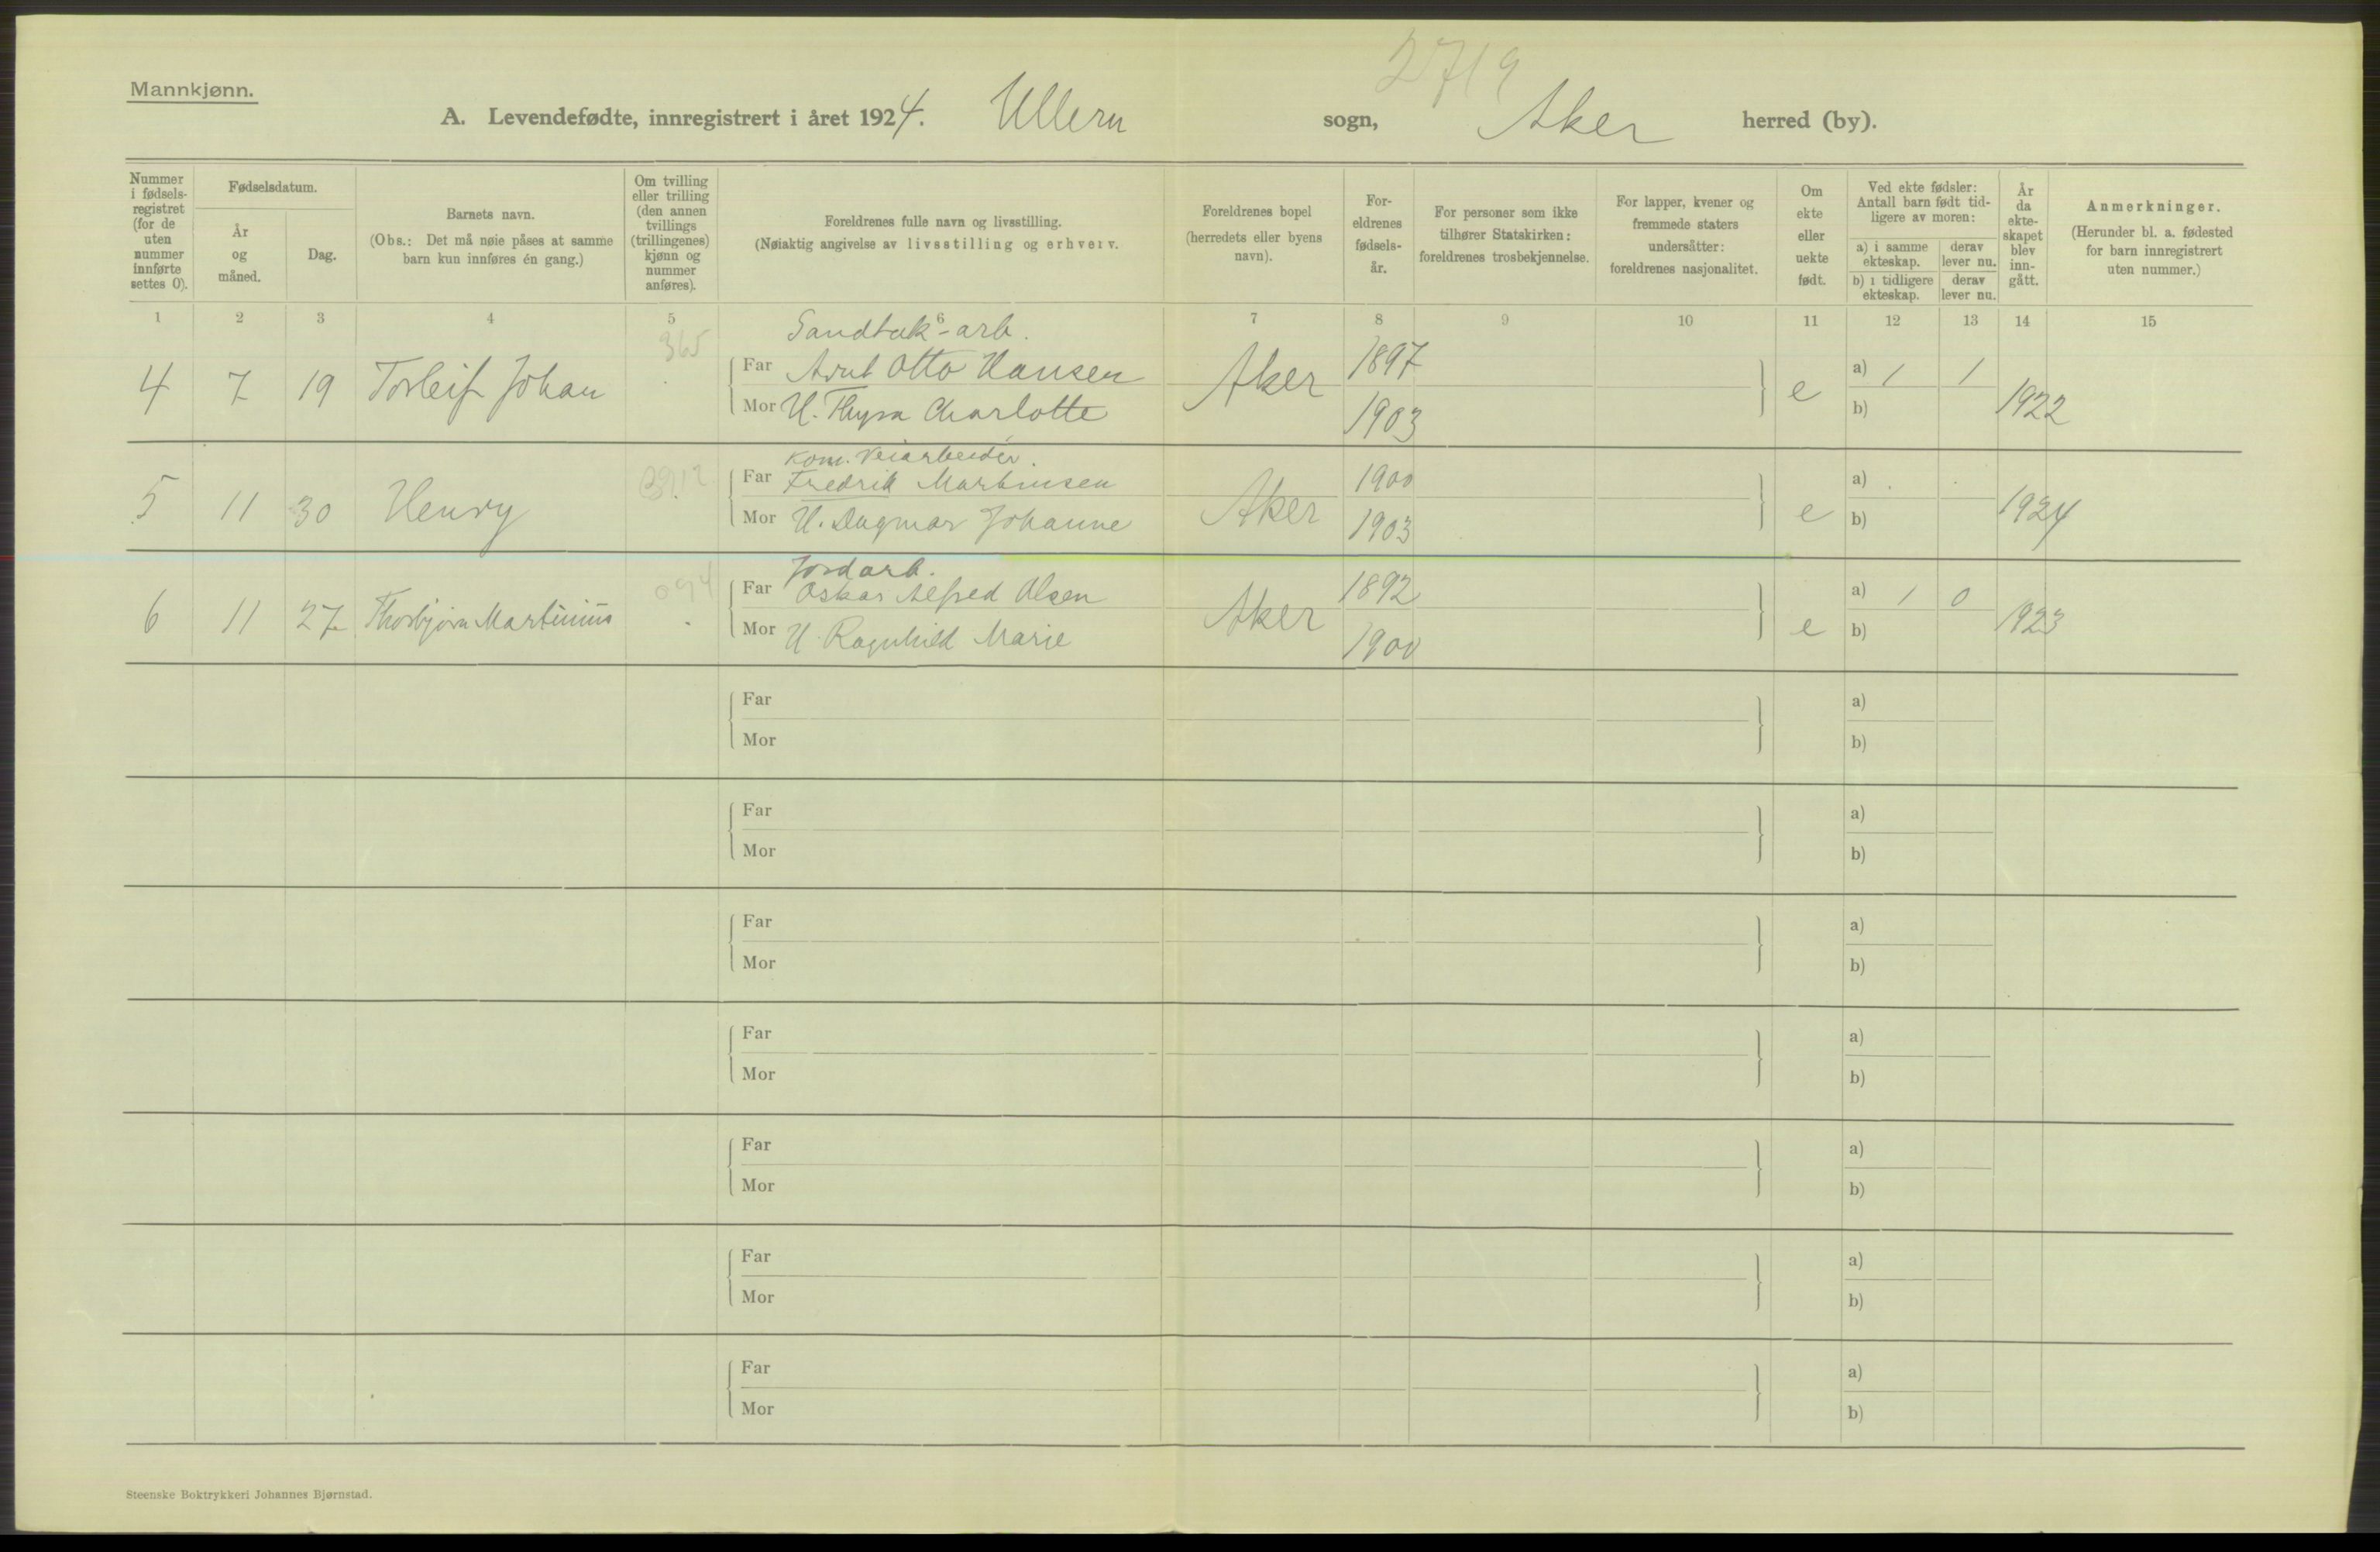 2719
Mannkjønn.
A. Levendefødte, innregistrert i året 1924. Ullern sogn, Aker herred (by).
Nummer i fødsels-registret (for de uten nummer innførte settes 0).
Fødselsdatum.
År og måned.
Dag.
Barnets navn.
(Obs.: Det må nøie påses at samme barn kun innføres én gang.)
Om tvilling eller trilling (den annen tvillings (trillingenes) kjønn og nummer anføres).
Foreldrenes fulle navn og livsstilling.
(Nøiaktig angivelse av livsstilling og erhverv.
Foreldrenes bopel (herredets eller byens navn).
For-eldrenes fødsels-år.
For personer som ikke tilhører Statskirken: foreldrenes trosbekjennelse.
For lapper, kvener og fremmede staters undersåtter: foreldrenes nasjonalitet.
Om ekte eller uekte født.
Ved ekte fødsler: Antall barn født tid-ligere av moren:
a) i samme ekteskap.
derav lever nu.
b) i tidligere ekteskap.
derav lever nu.
År da ekte-skapet blev inn-gått.
Anmerkninger.
(Herunder bl. a. fødested for barn innregistrert uten nummer.)
1 2 3 4 5 6 7 8 9 10 11 12 13 14 15
365 Sandtak-arb.
4 7 19 Torleif Johan Far Arnt Otto Hansen Aker 1897 e a) 1 1 1922
Mor H. Thyra Charlotte 1903 b)
Kom. Veiarbeider.
5 11 30 Henry Far Fredrik Martinsen Aker 1900 e a) . . 1924
Mor H. Dagmar Johanne 1903 b)
094 Jordarb.
6 11 27 Thorbjørn Martinius Far Oskar Alfred Olsen Aker 1892 e a) 1 0 1923
Mor H. Ragnhild Marie 1900 b)
Far a)
Mor b)
Far a)
Mor b)
Far a)
Mor b)
Far a)
Mor b)
Far a)
Mor b)
Far a)
Mor b)
Far a)
Mor b)
Steenske Boktrykkeri Johannes Bjørnstad.